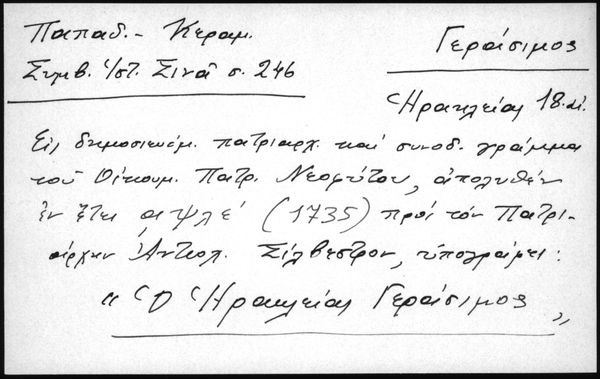 Παπαδ. - Κεραμ.
Συμβ. Ἱστ. Σινᾶ σ. 246
Γεράσιμος
Ἡρακλείας 18. αἰ.
Εἰς δημοσιευόμ. πατριαρχ. καί συνοδ. γράμμα
τοῦ Οἰκουμ. Πατρ. Νεοφύτου, ἀπολυθέν
ἐν ἔτει αψλέ (1735) πρός τόν Πατρι-
άρχην Ἀντιοχ. Σίλβεστρον, ὑπογράφει:
"Ὁ Ἡρακλείας Γεράσιμος"